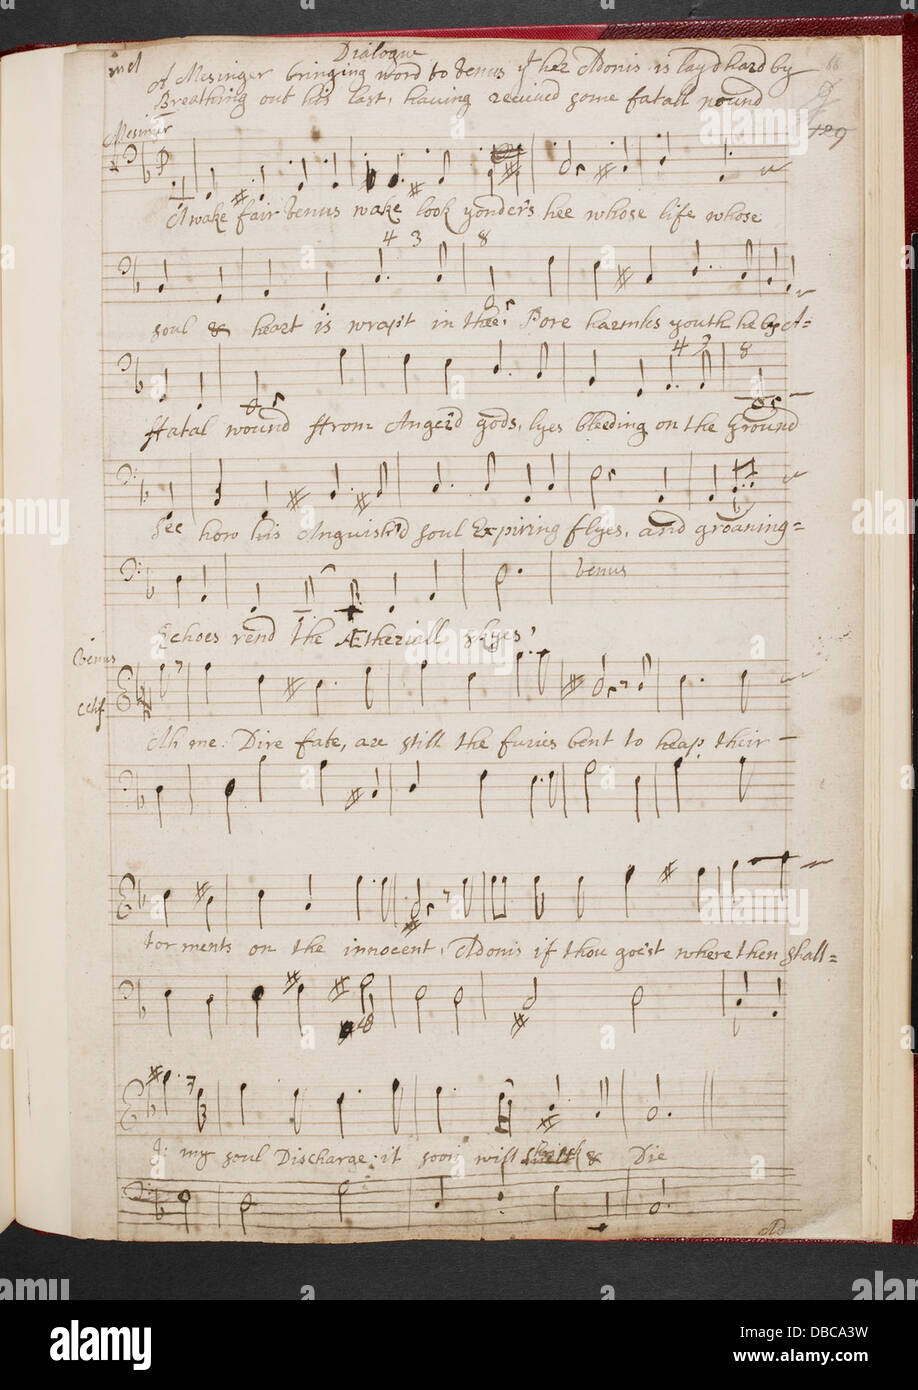 Dialogue
of Mesinger bringing word to Venus yt her Adonis is layd hard by
Breathing out his last, having recived some fatall wound
129
Mesinger
Awake fair Venus wake look yonders hee whose life whose
4 3 8
soul & heart is wrap't in thee, Pore harmles youth he by A=
4 3 8
ffatal wound ffrom Anger'd gods, lyes bleeding on the Ground
See how his Anguish'd soul Expiring flyes, and groaning=
Venus
Echoes rend the Ætheriall skyes,
Venus
Ah me. Dire fate, are still the furies bent to heap their
torments on the innocent, Adonis if thou goe'st where then shall=
I: my soul Discharge: it soon will & Die
alamy
Image ID: DBCA3W
www.alamy.com